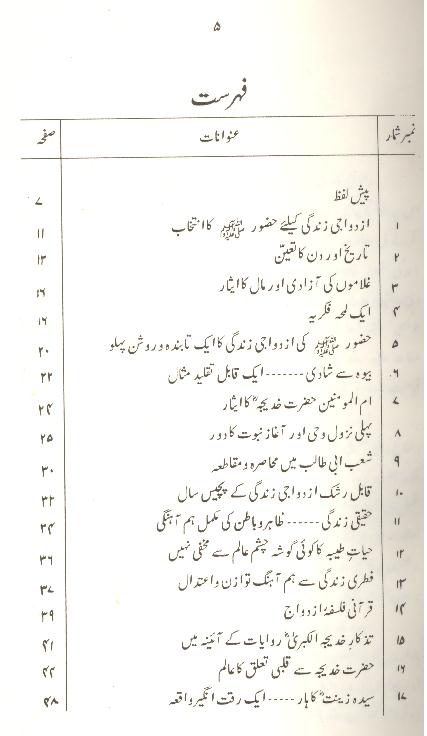 ۵
فہرست
نمبر شمار عنوانات صفحہ
پیش لفظ ۷
۱ ازدواجی زندگی کیلئے حضور ﷺ کا انتخاب ۱۱
۲ تاریخ اور دن کا تعیّن ۱۳
۳ غلاموں کی آزادی اور مال کا ایثار ۱۶
۴ ایک لمحہ فکریہ ۱۶
۵ حضور ﷺ کی ازدواجی زندگی کا ایک تابندہ و روشن پہلو ۲۰
۶ بیوہ سے شادی ....... ایک قابل تقلید مثال ۲۲
۷ ام المومنین حضرت خدیجہؓ کا ایثار ۲۴
۸ پہلی نزول وحی اور آغاز نبوت کا دور ۲۵
۹ شعب ابی طالب میں محاصرہ و مقاطعہ ۳۰
۱۰ قابل رشک ازدواجی زندگی کے پچیس سال ۳۲
۱۱ حقیقی زندگی ...... ظاہر و باطن کی مکمل ہم آہنگی ۳۴
۱۲ حیات طیبہ کا کوئی گوشہ چشم عالم سے مخفی نہیں ۳۶
۱۳ فطری زندگی سے ہم آہنگ توازن و اعتدال ۳۷
۱۴ قرآنی فلسفۂ ازدواج ۳۹
۱۵ تذکار خدیجہ الکبریٰؓ روایات کے آئینہ میں ۴۱
۱۶ حضرت خدیجہ سے قلبی تعلق کا عالم ۴۴
۱۷ سیدہ زینبؓ کا ہار ..... ایک رقت انگیز واقعہ ۴۸